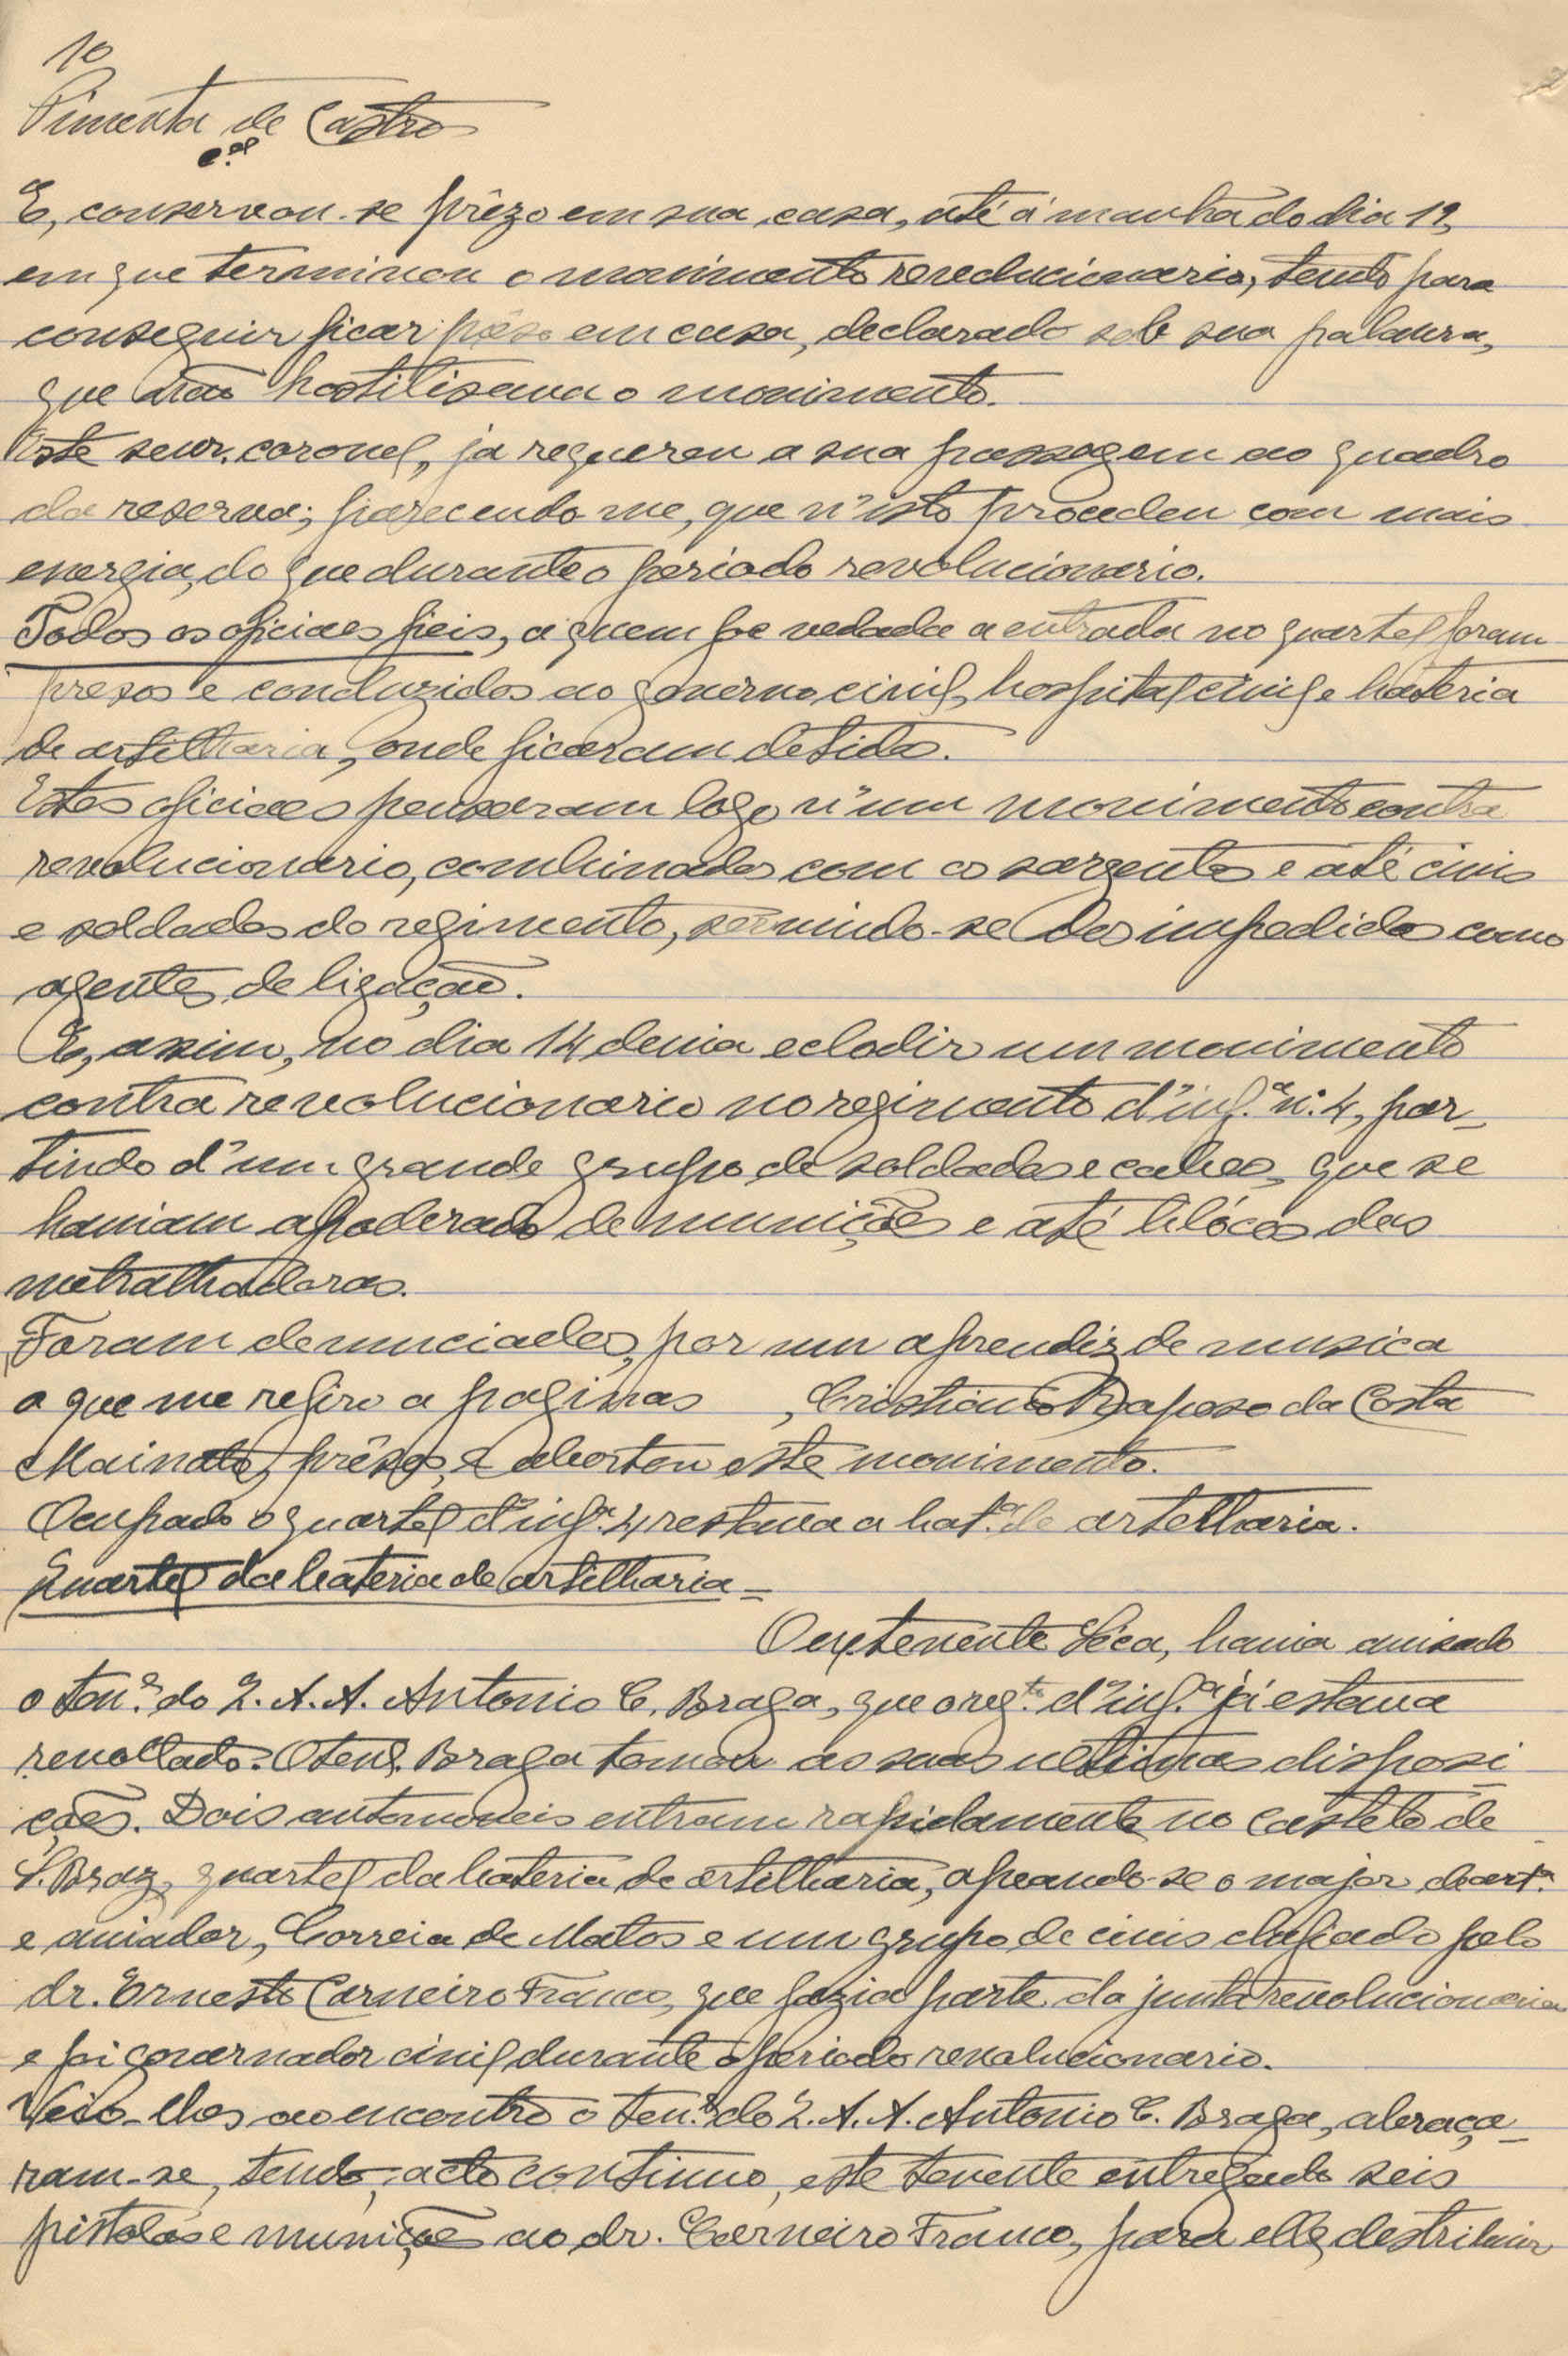 10
Pimenta de Castro
c.el
E, conservou-se prêzo em sua casa, até á manhã do dia 19,
em que terminou o movimento revolucionario, tendo para
conseguir ficar prêso em casa, declarado sob sua palavra,
que não hostilisava o movimento.
Este senr. coronel, ja requereu a sua passagem ao quadro
da reserva; parecendo-me, que n'isto procedeu com mais
energia, do que durante o periodo revolucionario.
Todos os oficiaes fieis, a quem foe vedada a entrada no quartel foram
presos e conduzidos ao governo civil, hospital civil e bateria
de artilharia, onde ficaram detidos.
Estes oficiaes pensaram logo n'um movimento contra
revolucionario, combinados com os sargentos e até civis
e soldados do regimento, servindo-se dos impedidos como
agentes de ligação.
E, assim, no dia 14 devia eclodir um movimento
contra revolucionario no regimento d'inf.ª n.º 4, par-
tindo d'um grande grupo de soldados e cabos, que se
haviam apoderado de munições e até blócos das
metralhadoras.
Foram denunciados, por um aprendiz de musica
a que me refiro a paginas , Cristiano Raposo da Costa
Mainoto, prêsos, e abortou este movimento.
Ocupado o quartel d'inf.ª 4 restava a bat.ª de artelharia.
Quartel da bateria de artilharia =
O tenente Séca, havia avisado
o ten.e do Q. A. A. Antonio C. Braga, que o reg.to d'inf.ª já estava
revoltado. O ten.e Braga tomou as suas ultimas disposi
ções. Dois automoveis entram rapidamente no castelo de
S. Braz, quartel da bateria de artilharia, apeando-se o major de art.ª
e aviador, Correia de Matos e um grupo de civis chefiado pelo
dr. Ernesto Carneiro Franco, que fazia parte da junta revolucionaria
e foi governador civil durante o periodo revolucionario.
Veio-lhes ao encontro o ten.e do Q. A. A. Antonio C. Braga, abraça-
ram-se, tendo, acto continuo, este tenente entregado seis
pistolas e munições ao dr. Carneiro Franco, para elle, destribuir